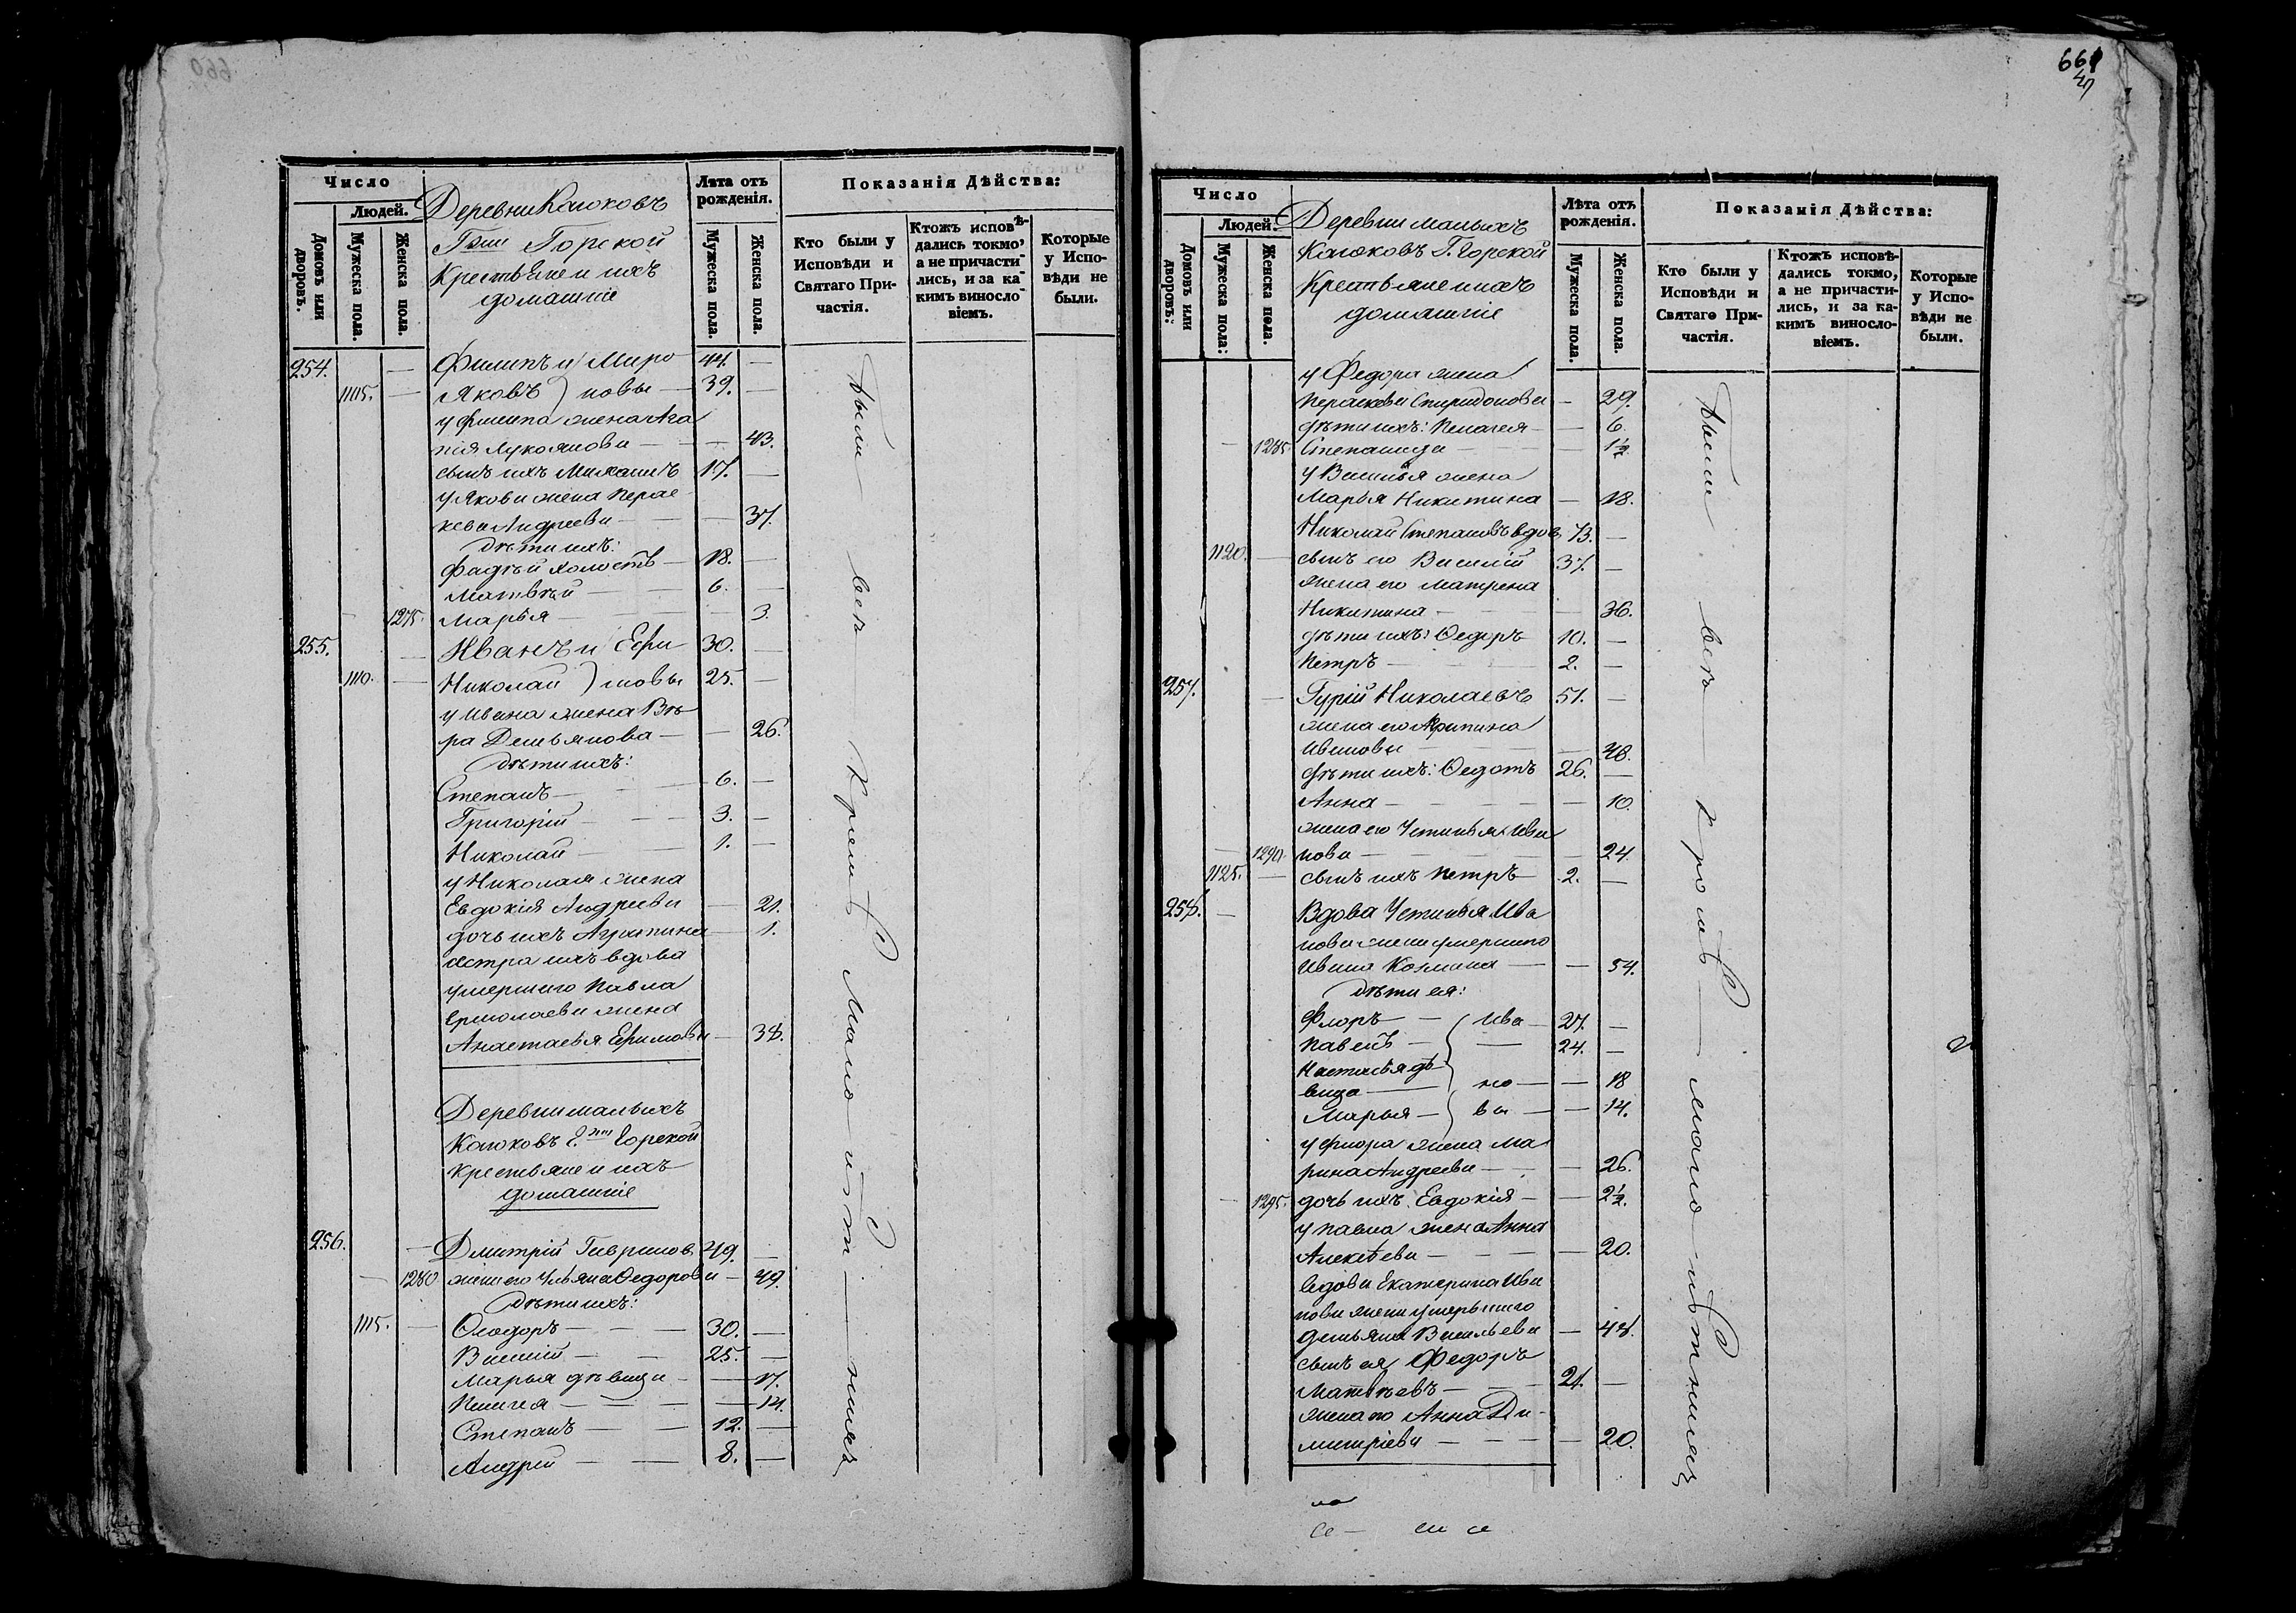 660
Число
Людей.
Домовъ или дворовъ.
Мужеска пола.
Женска пола.
Деревни Каюковъ
Гжи Горской
Крестьяне и ихъ
домашніе
Лѣта отъ рожденія.
Мужеска пола.
Женска пола.
Показанія Дѣйства:
Кто были у Исповѣди и Святаго Причастія.
Ктожъ исповѣдались токмо, а не причастились, и за какимъ винословіемъ.
Которые у Исповѣди не были.
254. — Филипъ и Миро 44. —
1105. — Яковъ ) новы — 39. —
у Филипа жена Ага
пія Лукоянова — — 43.
сынъ ихъ Михаилъ 17. —
у Якова жена Парас
кева Андреева — — 37.
дѣти ихъ:
Фадѣй холостъ — 18. —
Матвѣй — 6. —
1275. Марья — — 3.
255. — Иванъ и Ефи 30. —
1110. — Николай ) мовы 25. —
у Ивана жена Вѣ
ра Демьянова — — 26.
дѣти ихъ:
Степанъ — 6. —
Григорій — 3. —
Николай — 1. —
у Николая жена
Евдокія Андреева — 21.
дочь ихъ Агрипина — 1.
сестра ихъ вдова
умершаго Павла
Ермолаева жена
Анастасья Ефимова — 38.
Деревни малыхъ
Каюковъ Г.жи Горской
крестьяне и ихъ
домашніе
256. — Дмитрій Гавриловъ 49. —
1280 жена его Ульяна Федорова — 49.
дѣти ихъ:
1115. — Ѳеодоръ — 30. —
Василій — 25. —
Марья дѣвица — — 17.
Пелагея — — 14.
Степанъ — 12. —
Андрей — 8. —
были всѣ кромѣ мало-лѣтнихъ
661
Число
Людей.
Домовъ или дворовъ.
Мужеска пола.
Женска пола.
Деревни малыхъ
Каюковъ Г. Горской
Крестьяне и ихъ
домашніе
Лѣта отъ рожденія.
Мужеска пола.
Женска пола.
Показанія Дѣйства:
Кто были у Исповѣди и Святаго Причастія.
Ктожъ исповѣдались токмо, а не причастились, и за какимъ винословіемъ.
Которые у Исповѣди не были.
у Федора жена
Параскева Спиридонова — 29.
дѣти ихъ: Пелагея — — 6.
— 1285 Степанида — — 1½
у Василья жена
Марья Никитина — 18.
Николай Степановъ вдовъ 73. —
1120. — сынъ его Василій 37. —
жена его Матрена
Никитина — — 36.
дѣти ихъ: Ѳедоръ 10. —
Петръ — 2. —
257. — Гурій Николаевъ 51. —
жена его Агрипина
Иванова — — 48.
дѣти ихъ: Ѳедотъ 26. —
Анна — — 10.
жена его Устинья Ива
— 1290 нова — — 24.
1125. — сынъ ихъ Петръ — 2. —
258. — Вдова Устинья Ива
нова жена умершаго
Ивана Козмина — — 54.
дѣти ея:
Флоръ — ( Ива — 27. —
Павелъ — — 24. —
Настасья дѣ
вица — но — — 18
Марья — ) вы — — 14.
у Флора жена Ма
рина Андреева — — 26.
— 1295. дочь ихъ Евдокія — — 2½.
у Павла жена Анна
Алексѣева — — 20.
вдова Екатерина Ива
нова жена умершаго
Демьяна Васильева — 48.
сынъ ея Федоръ
Матвѣевъ — 21. —
жена его Анна Ди-
митріева — — 20.
были всѣ кромѣ мало-лѣтнихъ